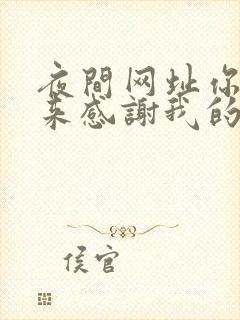 夜間网址你
来感謝我的
侯官